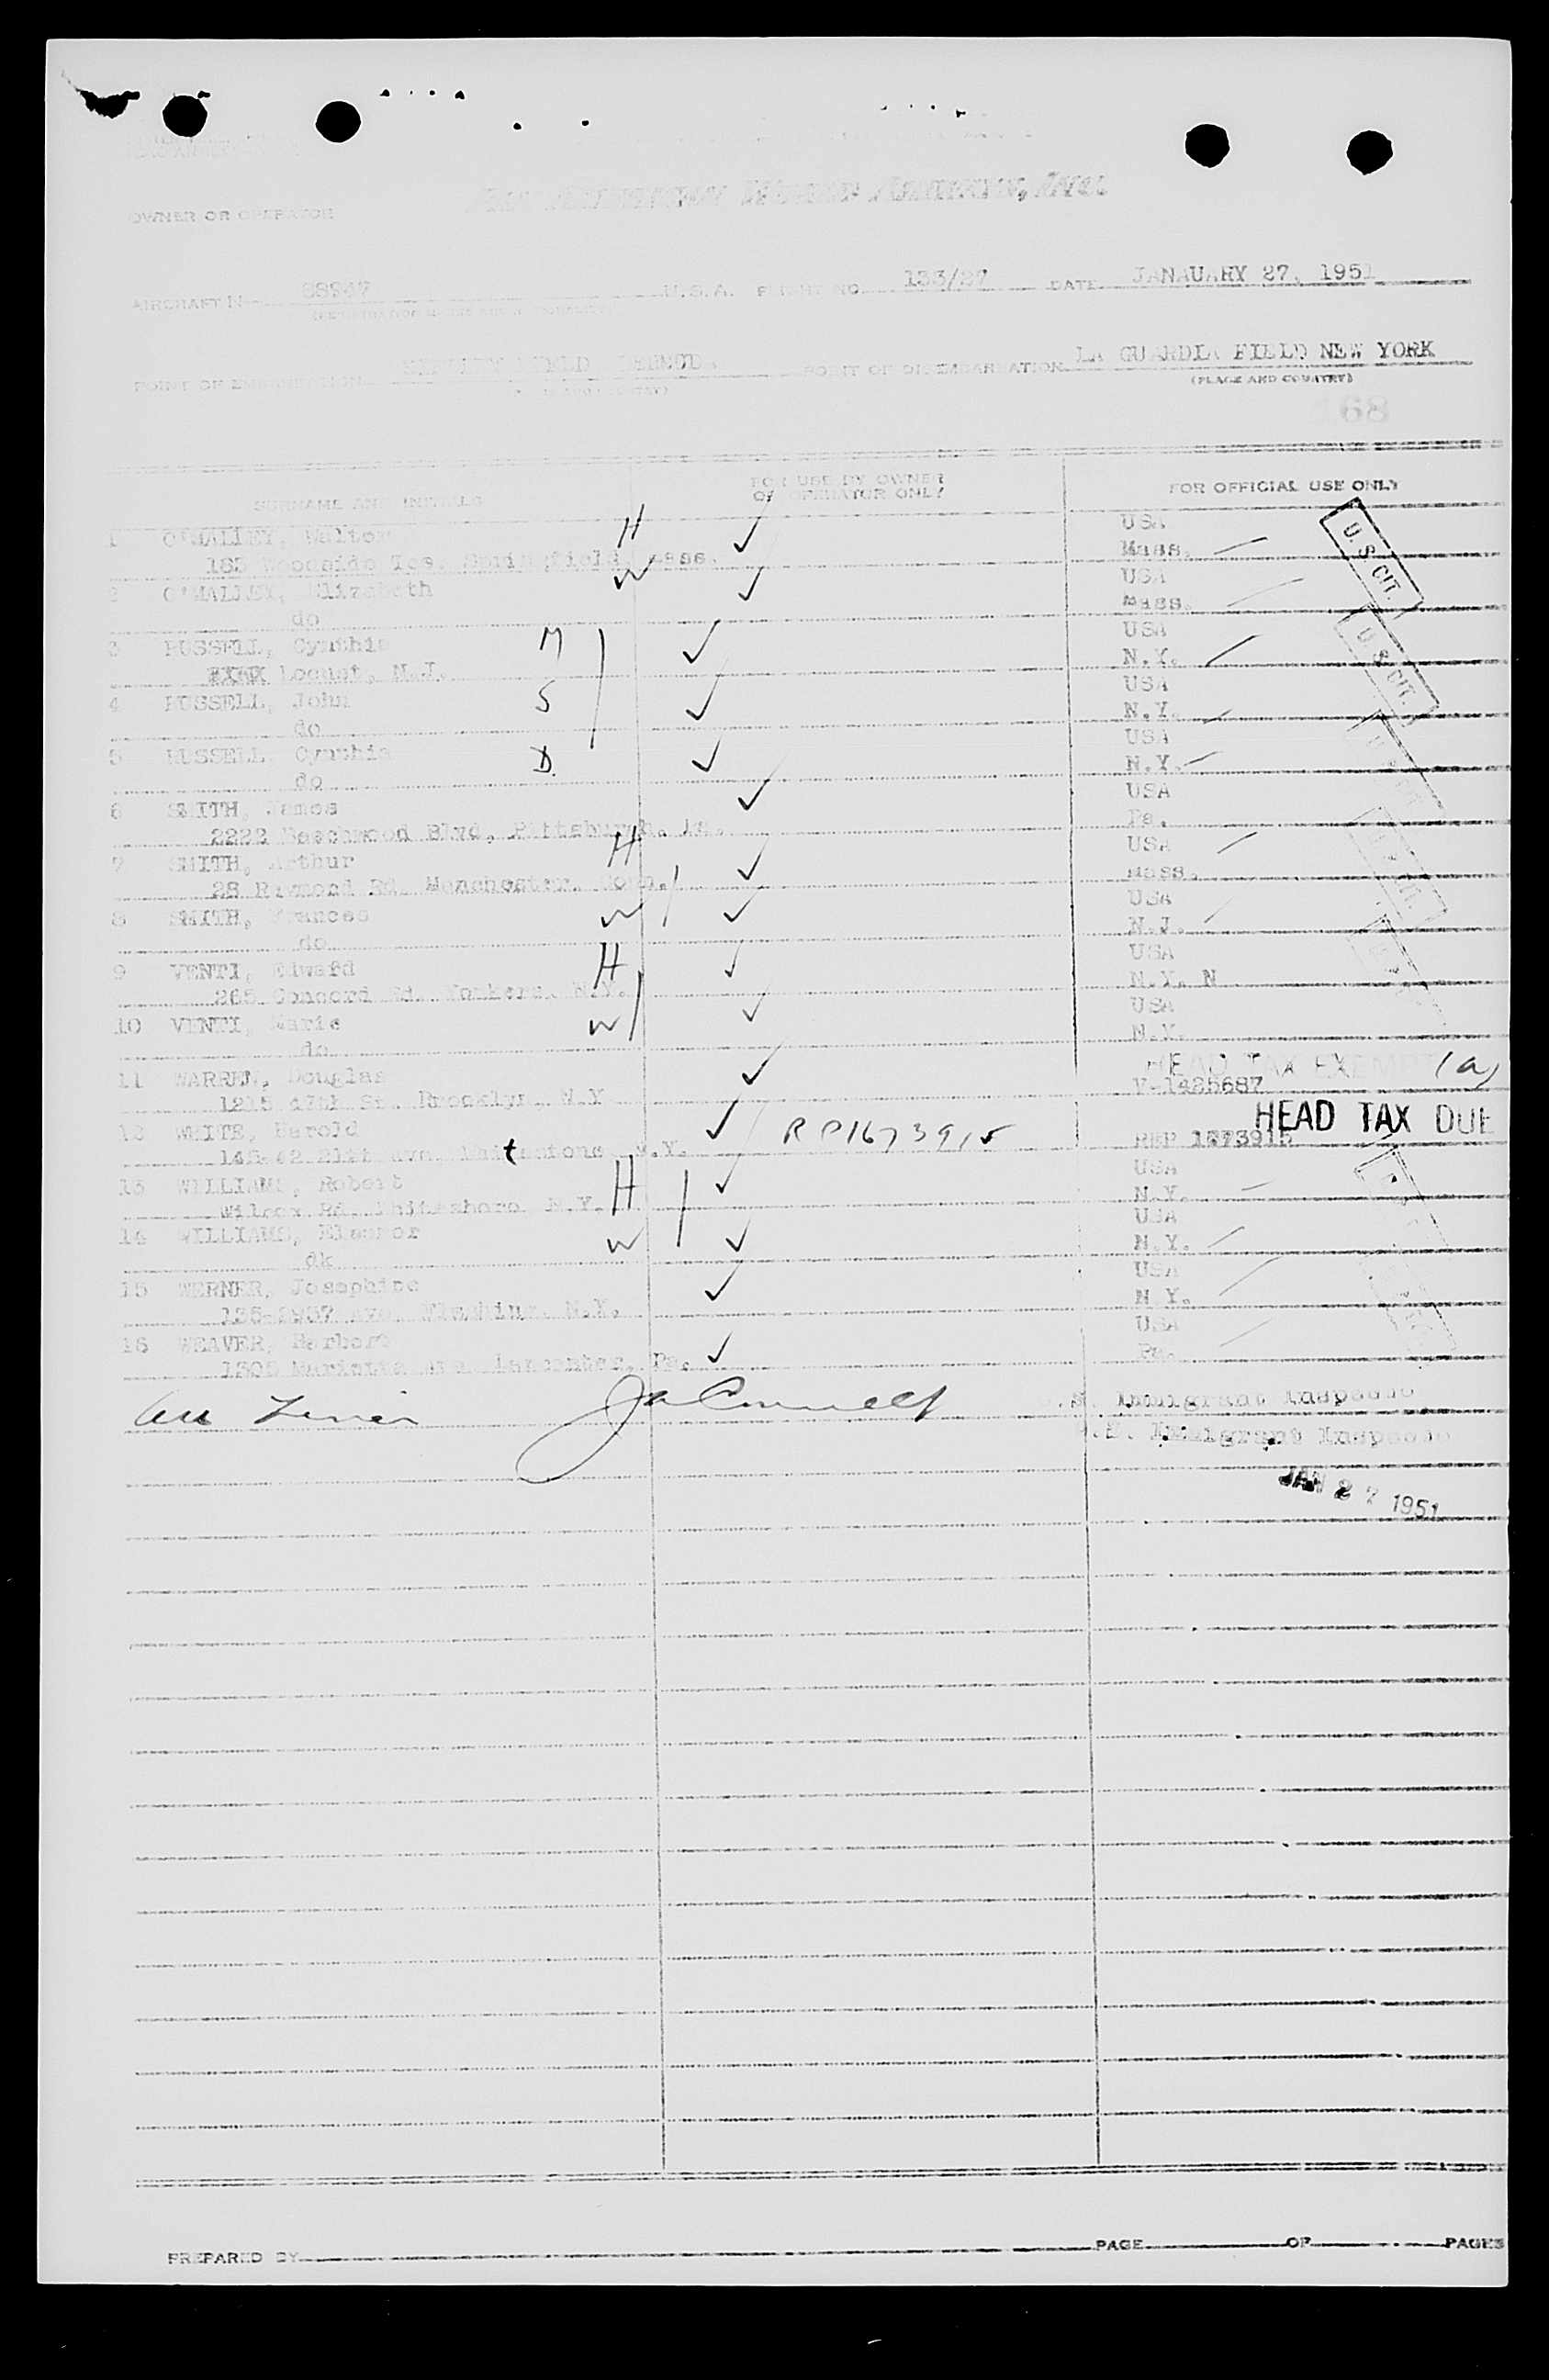 OWNER OR OPERATOR PAN AMERICAN WORLD AIRWAYS, INC.
AIRCRAFT N 88947 U.S.A. FLIGHT NO. 133/27 DATE JANAUARY 27, 1951
POINT OF EMBARKATION FIELD BERMUDA POINT OF DISEMBARKATION LA GUARDIA FIELD NEW YORK
(PLACE AND COUNTRY)
168
SURNAME AND INITIALS FOR USE BY OWNER OR OPERATOR ONLY FOR OFFICIAL USE ONLY
1 O'MALLEY, Walter H ✓ USA
183 Woodside Tce Springfield, Mass. Mass.
U.S. CIT.
2 O'MALLEY, Elizabeth W ✓ USA
do Mass.
3 RUSSELL, Cynthia M ✓ USA
Locust, N.J. N.Y.
U.S. CIT.
4 RUSSELL, John S ✓ USA
do N.Y.
5 RUSSELL Cynthia D. ✓ USA
do N.Y.
6 SMITH, James ✓ USA
2222 Beechwood Blvd, Pittsburgh, Pa. Pa.
7 SMITH, Arthur H ✓ USA
28 Raymond Rd. Manchester, Conn. Mass.
8 SMITH, Frances W ✓ USA
do N.J.
9 VENTI, Edward H ✓ USA
265 Concord Rd. Yonkers, N.Y. N.Y. N
10 VENTI, Marie W ✓ USA
do N.Y.
HEAD TAX EXEMPT (a)
11 WARREN, Douglas ✓ V-1425687
1215 47th St. Brooklyn N.Y
HEAD TAX DUE
12 WHITE, Harold ✓ RP1673915 REP 1673915
Whitestone N.Y.
13 WILLIAMS, Robert H ✓ USA
Wilcox Rd. Whitesboro N.Y. N.Y.
14 WILLIAMS, Eleanor W ✓ USA
dk N.Y.
15 WERNER, Josephine ✓ USA
Flushing N.Y. N.Y.
16 WEAVER, Herbert ✓ USA
1505 Marietta Ave Lancaster, Pa. Pa.
U.S. Immigrant Inspector
U.S. Immigrant Inspector
JAN 27 1951
PREPARED BY PAGE OF PAGES